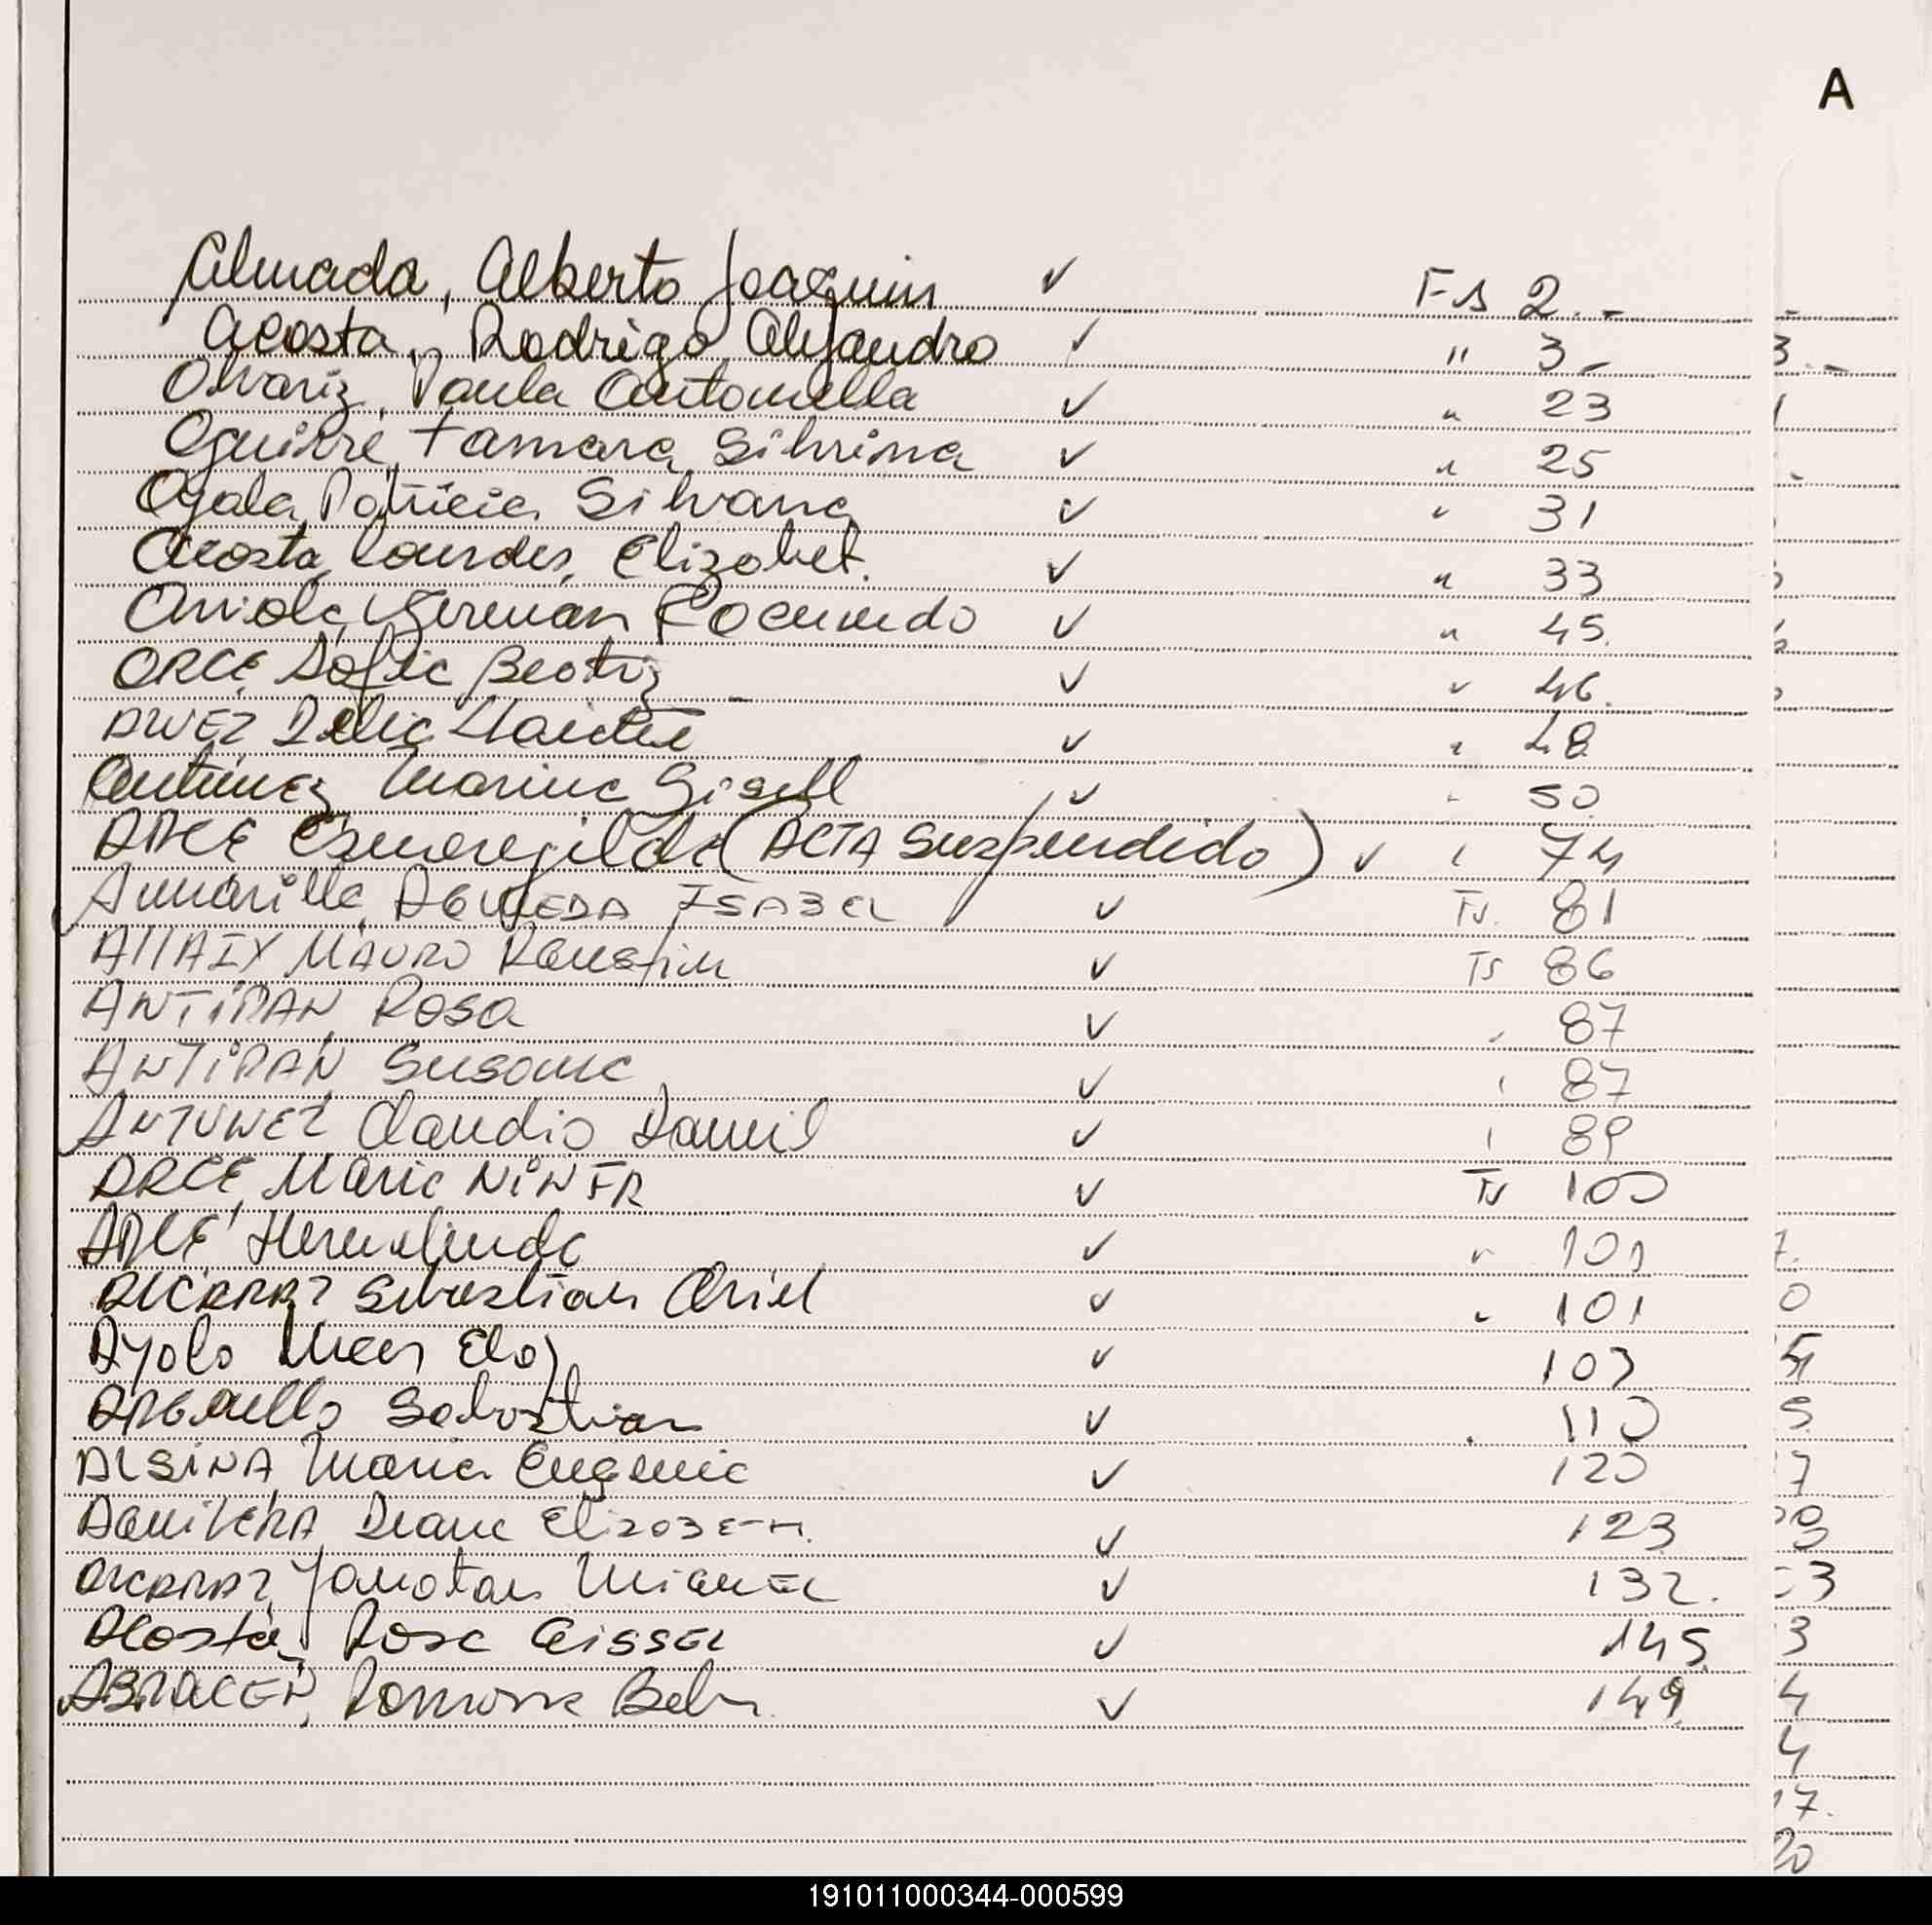 A
Almada, Alberto Joaquin ✓ Fs 2.-
Acosta, Rodrigo Alejandro ✓ " 3-
Alvariz, Paula Antonella ✓ " 23
Aguirre, Tamara Silvina ✓ " 25
Ayala, Patricia Silvana ✓ " 31
Acosta, Lourdes, Elizabet. ✓ " 33
Arriola, German Facundo ✓ " 45.
ARCE, Sofia Beatriz - ✓ " 46.
Delia ✓ " 48
Antunez Marina Gisell ✓ " 50
ARCE Esmeregilda (ACTA Suspendido) ✓ " 74
Amarilla, AGUEDA ISABEL ✓ Fs. 81
AllAIX MAURO ✓ Fs 86
ANTIPAN, Rosa ✓ " 87
ANTIPAN, Susana ✓ " 87
ANTUNEZ Claudio Daniel ✓ " 89
ARCE, Maria NiNFA ✓ Fs 100
ARCE, Hermelinda ✓ " 101
ALCARAZ Sebastian Ariel ✓ " 101
Ayala Eloy ✓ 103
ARGuello Sebastian ✓ . 110
ALSiNA, Maria Eugenia ✓ 120
Diana ElizaBETH. ✓ 123
ALCARAZ, Jonatan MiGuEL ✓ 132.
Acosta, Rosa GissEL ✓ 145.
Romina Belen ✓ 149.
191011000344-000599